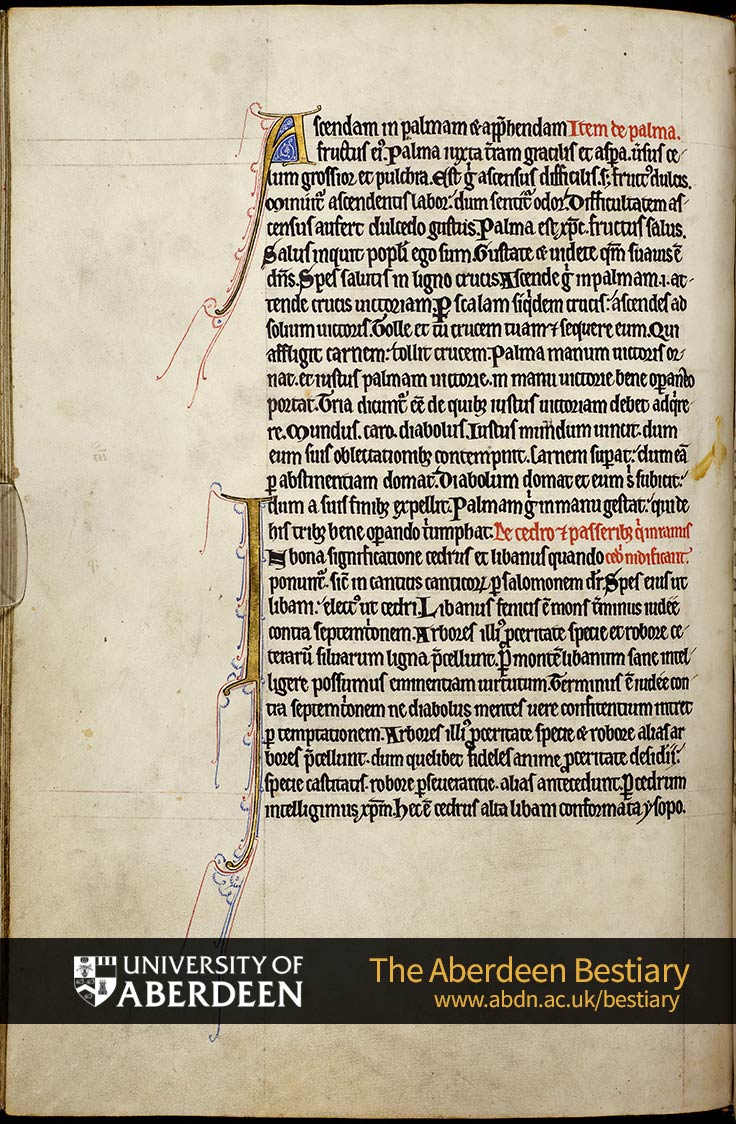 Ascendam in palmam & app̄hendam Item de palma.
fructus eiꝰ. Palma iuxta t̄ram gracilis et asp̄a. ūsus ce
lum grossior et pulchra. Est g̊ ascensus difficilis. s; fructꝰ dulcis.
Minuit᷑ ascendentis labor. dum sentit᷑ odor. Difficultatem as
census aufert dulcedo gustus. Palma est xp̄c. fructus salus.
Salus inquit popl̄i ego sum. Gustate & uidete qm̄ suauis ē
dn̄s. Spes salutis in ligno crucis. Ascende g̊ in palmam .i. at
tende crucis uictoriam. P scalam siq̇dem crucis: ascendes ad
solium uictoris. Tolle et tu crucem tuam ⁊ sequere eum. Qui
affligit carnem: tollit crucem. Palma manum uictoris or
nat. et iustus palmam uictorie. in manu uictorie bene oꝑando
portat. Tria dicunt᷑ eē de quibꝫ iustus uictoriam debet adq̇re
re. Mundus. caro. diabolus. Iustus mundum uincit. dum
eum suis oblectationibꝫ contempnit. Carnem suꝑat: dum eā
ꝑ abstinentiam domat. Diabolum domat et eum s̄ subicit:
dum a suis finibꝫ expellit. Palmam g̊ in manu gestat: qui de
his tribꝫ bene oꝑando ṫumphat. De cedro ⁊ passeribꝫ q̇ in ramis
In bona significatione cedrus et libanus quando ced̄ nidificant.
ponunt᷑. sic̄ in canticis canticoꝝ ꝑ salomonem dr̄. Spes eius ut
libani: electꝰ ut cedri. Libanus fenicis ē mons t̄minus iudee
contra septemṫonem. Arbores illiꝰ ꝓceritate specie et robore ce
terarū siluarum ligna p̄cellunt. P̄ montē libanum sane intel
ligere possumus eminentiam uirtutum. Terminus ē iudee con
tra septemṫonem ne diabolus mentes uere confitentium intret
ꝑ temptationem. Arbores illiꝰ ꝓceritate specie & robore alias ar
bores p̄cellunt. dum quelibet fideles anime ꝓceritate desidii:
specie castitatis. robore ꝑseuerantie. alias antecedunt. P̄ cedrum
intelligimus xp̄m. Hec ē cedrus alta libani conformata ysopo.
UNIVERSITY OF
ABERDEEN
The Aberdeen Bestiary
www.abdn.ac.uk/bestiary